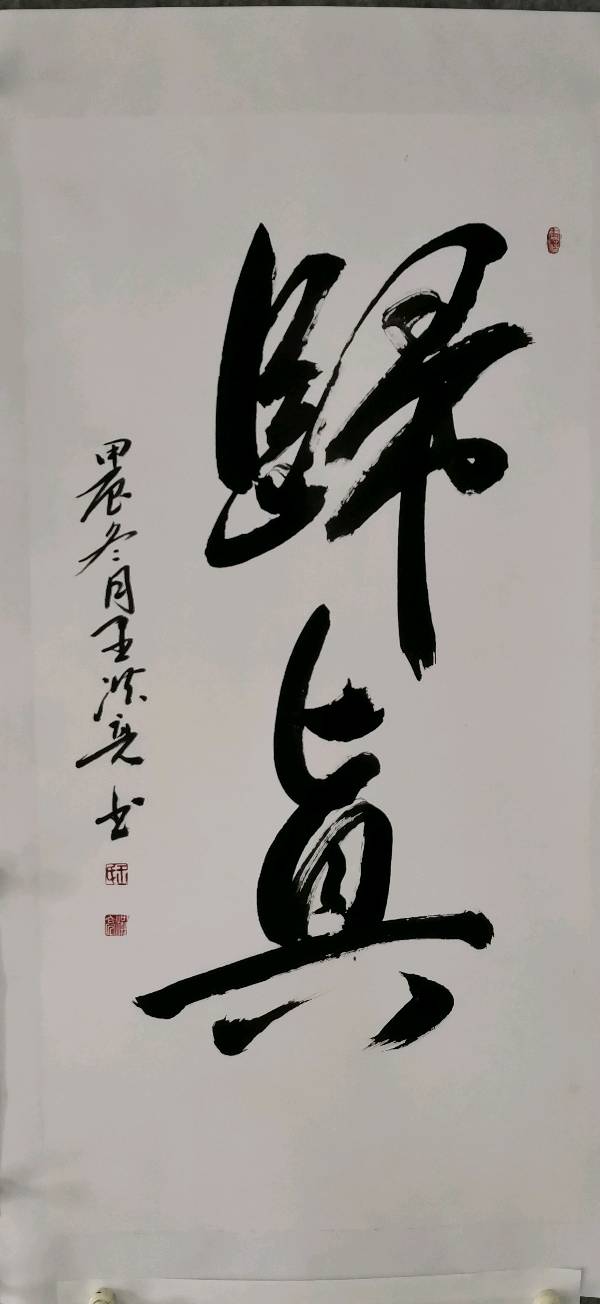 歸真
甲辰冬月王洪亮书